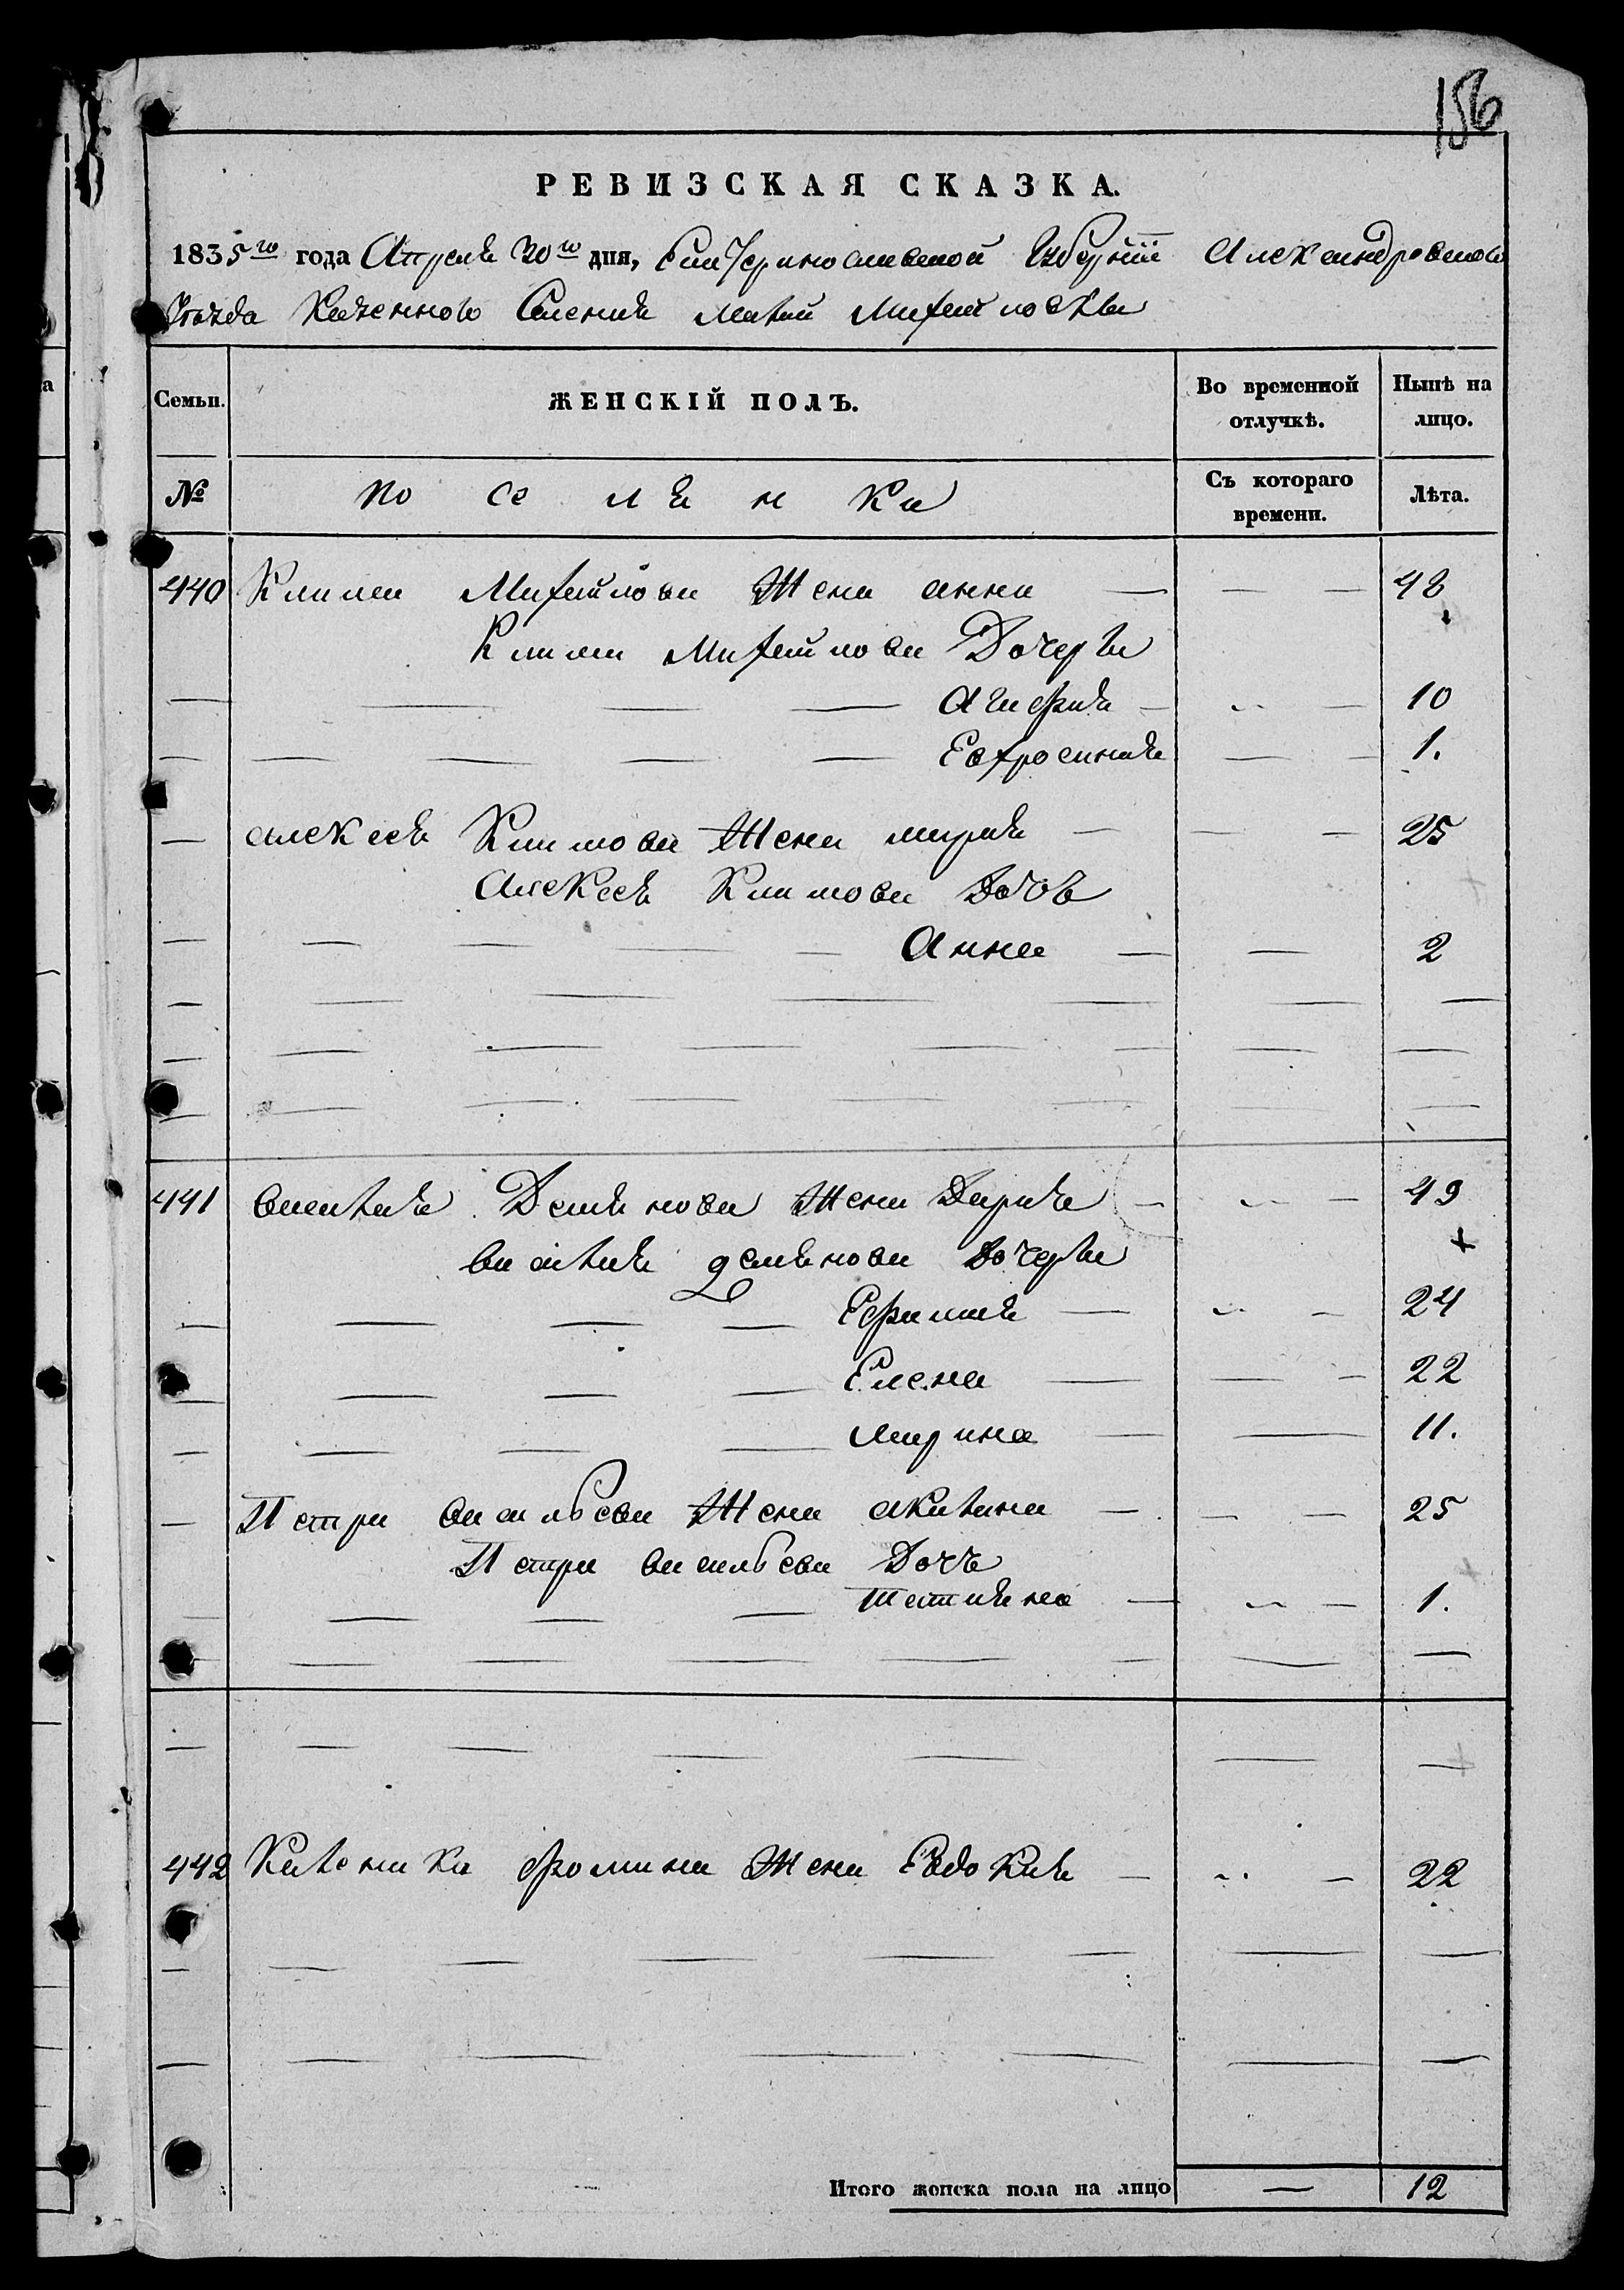 156
РЕВИЗСКАЯ СКАЗКА.
1835го года Апреля 20го дня, Екатеринославской Губернїи Александровского
Уезда Казенного Селения Малой Михайловки
Семьи. ЖЕНСКІЙ ПОЛЪ. Во временной отлучкѣ. Нынѣ на лицо.
№ поселянки Съ котораго времени. Лѣта.
440 Клима Михайлова Жена анна — — — 48
Клима Михайлова Дочери
— — — — Агафия — — — 10
— — — — — Евфросиния — — 1.
— алексея Климова Жена мария — — — 25
Алексея Климова Дочь
— — — — — Анна — — 2
441 василия Демянова Жена Дария — — — 49
василия демянова Дочери
— — — — Ефимия — — — 24
— — — — Елена — — — 22
— — — — марина — — 11.
— Петра васильева Жена акилина — — — 25
Петра васильева Дочъ
— — — — татияна — — — 1.
442 Каленика фомина Жена Евдокия — — — 22
Итого женска пола на лицо — 12